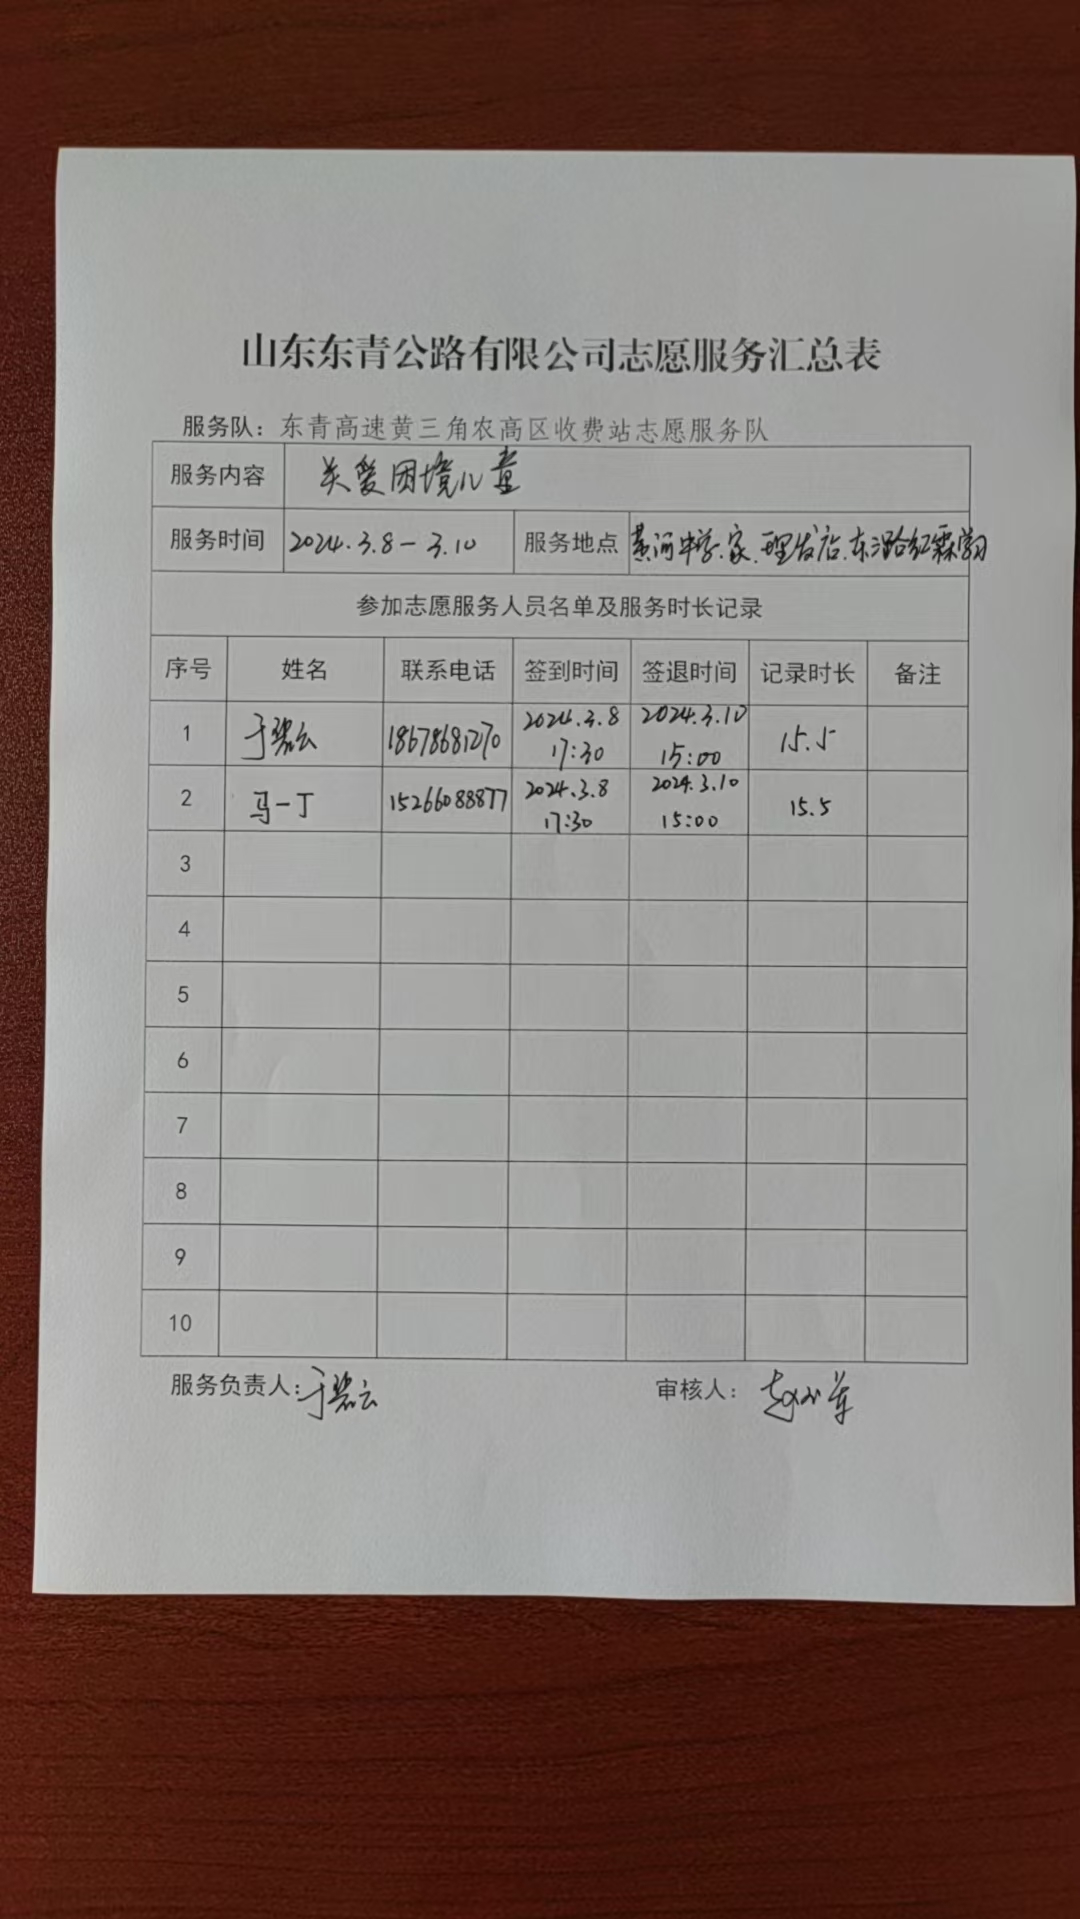 山东东青公路有限公司志愿服务汇总表
服务队：东青高速黄三角农高区收费站志愿服务队
服务内容 关爱困境儿童
服务时间 2024.3.8－3.10 服务地点 黄河中学.家.理发店.东路红霖学习
参加志愿服务人员名单及服务时长记录
序号 姓名 联系电话 签到时间 签退时间 记录时长 备注
1 于碧云 18678681270 2024.3.8 17:30 2024.3.10 15:00 15.5
2 马一丁 15266088877 2024.3.8 17:30 2024.3.10 15:00 15.5
3
4
5
6
7
8
9
10
服务负责人：于碧云 审核人：